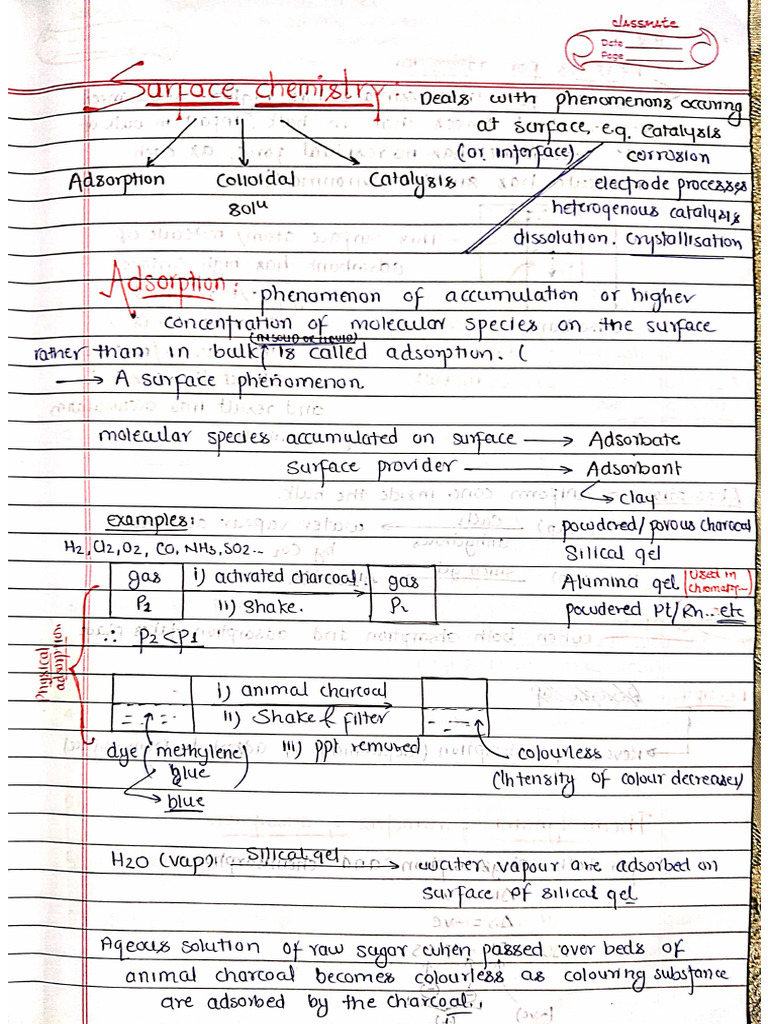 classmate
Date
Page
Surface chemistry:
Deals with phenomenons occuring
at surface, e.g. Catalysis
(or interface)
corrosion
electrode processes
heterogenous catalysis
dissolution. Crystallisation
Adsorption
Colloidal
solu
Catalysis
Adsorption: phenomenon of accumulation or higher
concentration of molecular species on the surface
(IN SOLID OR LIQUID)
rather than in bulk is called adsorption. (
→ A surface phenomenon.
molecular species accumulated on surface → Adsorbate
Surface provider → Adsorbant
clay
powdered/porous charcoal
Silical gel
Alumina gel (Used in
powdered Pt/Rh.. etc
examples:
H2, Cl2, O2, CO, NH3, SO2...
gas
P1
i) activated charcoal
ii) Shake.
gas
P2
∴ P2 < P1
Physical
adsorption
i) animal charcoal
ii) Shake & filter
iii) ppt removed
dye (methylene)
blue
blue
colourless
(Intensity of colour decreases)
H2O (vap): Silical gel → water vapour are adsorbed on
surface of silical gel
Aqeous solution of raw sugar when passed over beds of
animal charcoal becomes colourless as colouring substance
are adsorbed by the charcoal.